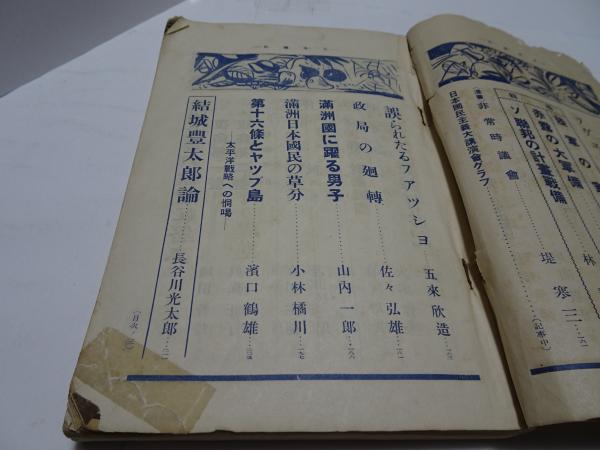 聯邦の計畫戰備
赤露の大軍備
漫畫 非常時議會 堤寒三
日本國民主義大講演會グラフ (記事中)
誤られたるファッショ 五來欣造
政局の廻轉 佐々弘雄
滿洲國に躍る男子 山內一郎
滿洲日本國民の草分 小林橘川
第十六條とヤップ島 濱口鶴雄
―太平洋戰略への恫喝―
結城豐太郎論 長谷川光太郎